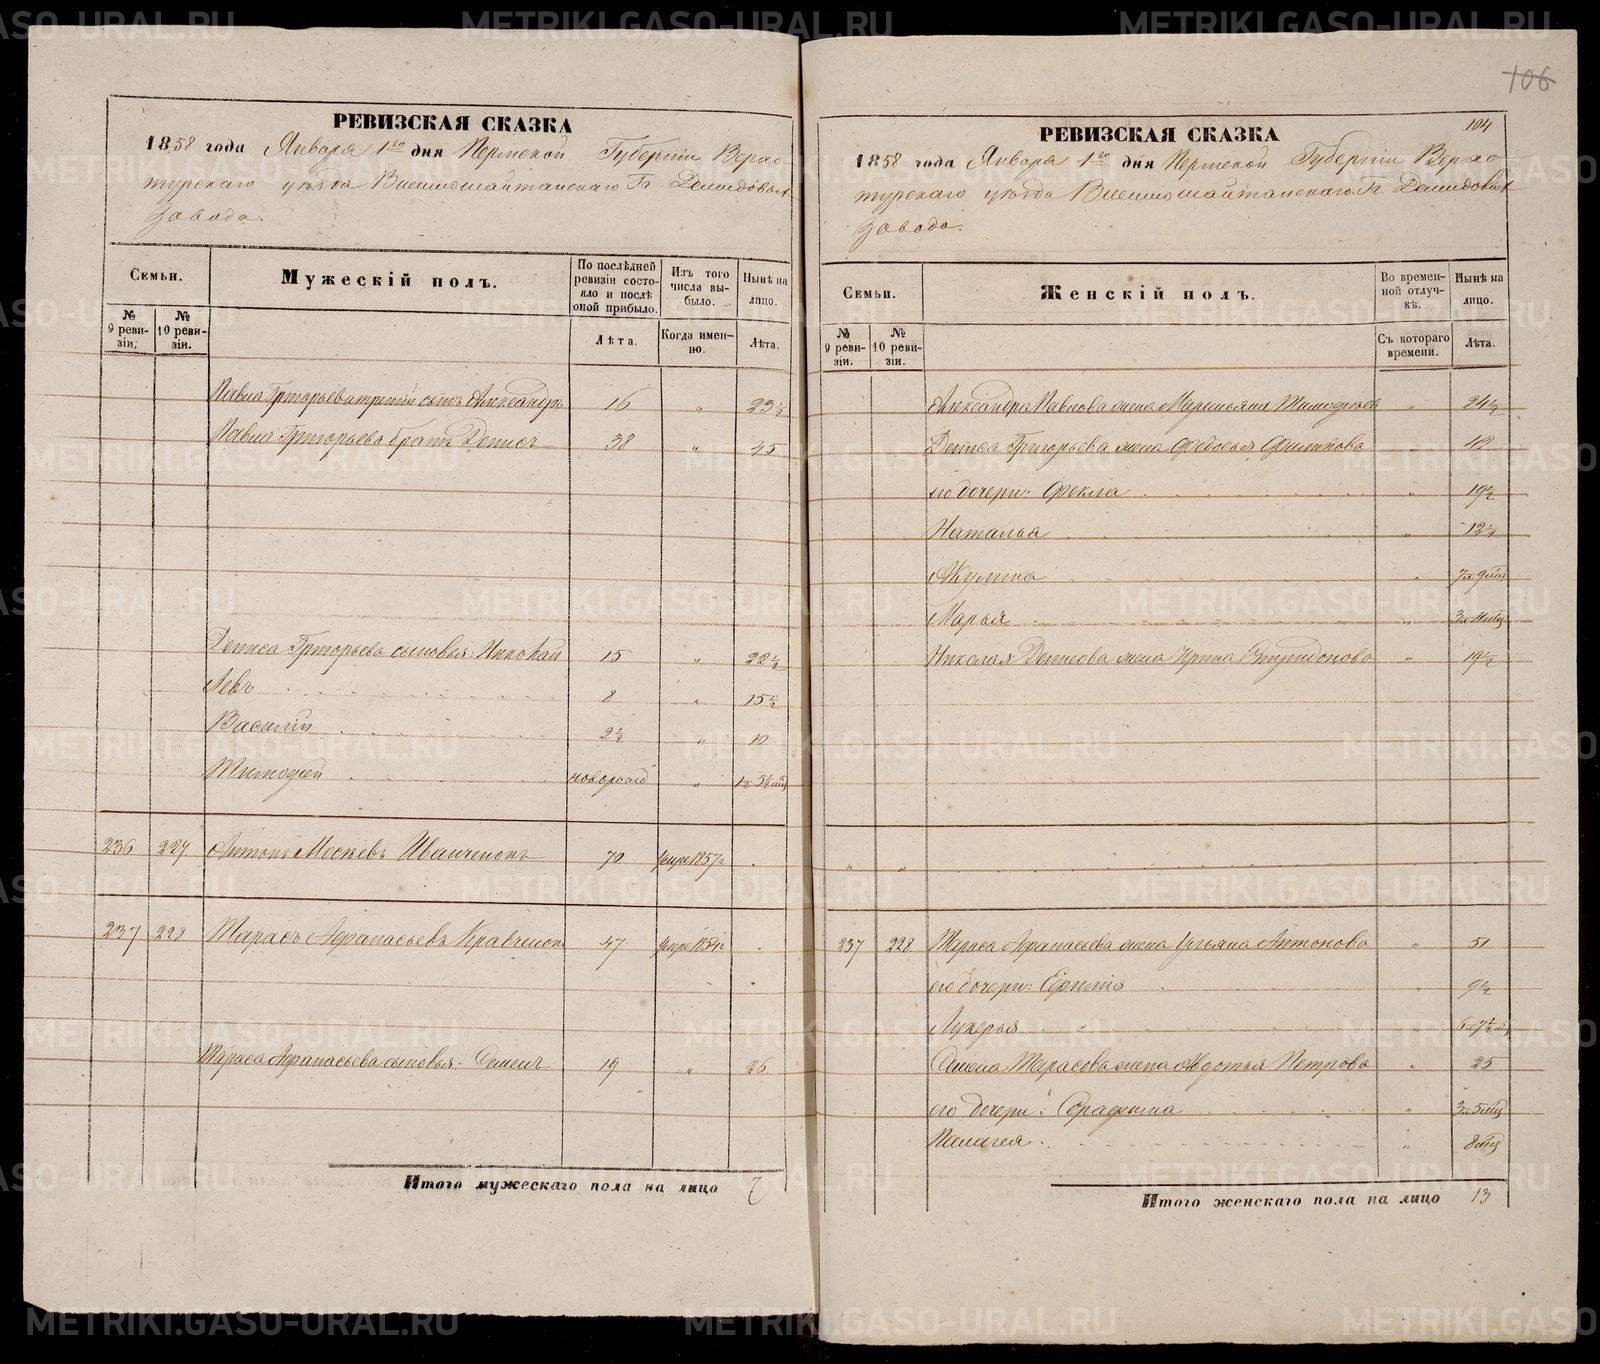 106
РЕВИЗСКАЯ СКАЗКА
1858 года Января 1го дня Пермской Губернiи Верхо
турскаго уѣзда Висимошайтанскаго Гг. Демидовых
Завода.
Семьи.
Мужескiй полъ.
По послѣдней ревизiи состояло и послѣ оной прибыло.
Изъ того числа выбыло.
Нынѣ на лицо.
№ 9 ревизiи.
№ 10 ревизiи.
Лѣта.
Когда именно.
Лѣта.
Павла Григорьева третiй сынъ Александръ 16 " 23½
Павла Григорьева братъ Денисъ 38 " 45
Дениса Григорьева сыновья: Николай 15 " 22½
Левъ 8 " 15½
Василiй 2½ " 10
Тимофей новорожд " 1г 5½ мѣс
236 227 Антонъ Иванченокъ 70 умре 1857г
237 228 Тарасъ Афанасьевъ Кравченокъ 47 умре 1854г
Тараса Афанасьева сыновья: Семенъ 19 " 26
Итого мужескаго пола на лицо 7
104
РЕВИЗСКАЯ СКАЗКА
1858 года Января 1го дня Пермской Губернiи Верхо
турскаго уѣзда Висимошайтанскаго Гг. Демидовых
Завода.
Семьи.
Женскiй полъ.
Во временной отлучкѣ.
Нынѣ на лицо.
№ 9 ревизiи.
№ 10 ревизiи.
Съ котораго времени.
Лѣта.
Александра Павлова жена Тимофеева " 24½
Дениса Григорьева жена Федосья Филипова "
его дочери: Фекла " 19½
Наталья " 12½
Акулина " 7л 9 мѣс
Марья " 3л
Николая Денисова жена Ирина Спиридонова " 19½
237 228 Тараса Афанасьева жена Ульяна Антонова " 51
его дочери: Ефимiя " 9½
Лукерья " 6л 7½ мѣс
Семена Тарасова жена Авдотья Петрова " 25
его дочери: Серафима " 3л 5 мѣс
Палагея " 8 мѣс
Итого женскаго пола на лицо 13
METRIKI.GASO-URAL.RU